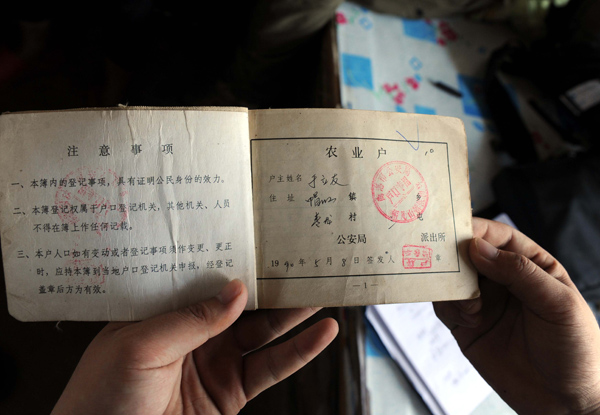 注意事项
一、本簿内的登记事项,具有证明公民身份的效力。
二、本簿登记权属于户口登记机关,其他机关、人员
不得在簿上作任何记载。
三、本户人口如有变动或者登记事项须作变更、更正
时,应持本簿到当地户口登记机关申报,经登记
盖章后方为有效。
农业户
户主姓名
住址 镇 乡
村 屯
公安局 派出所
1990年5月8日签发人 章
—1—